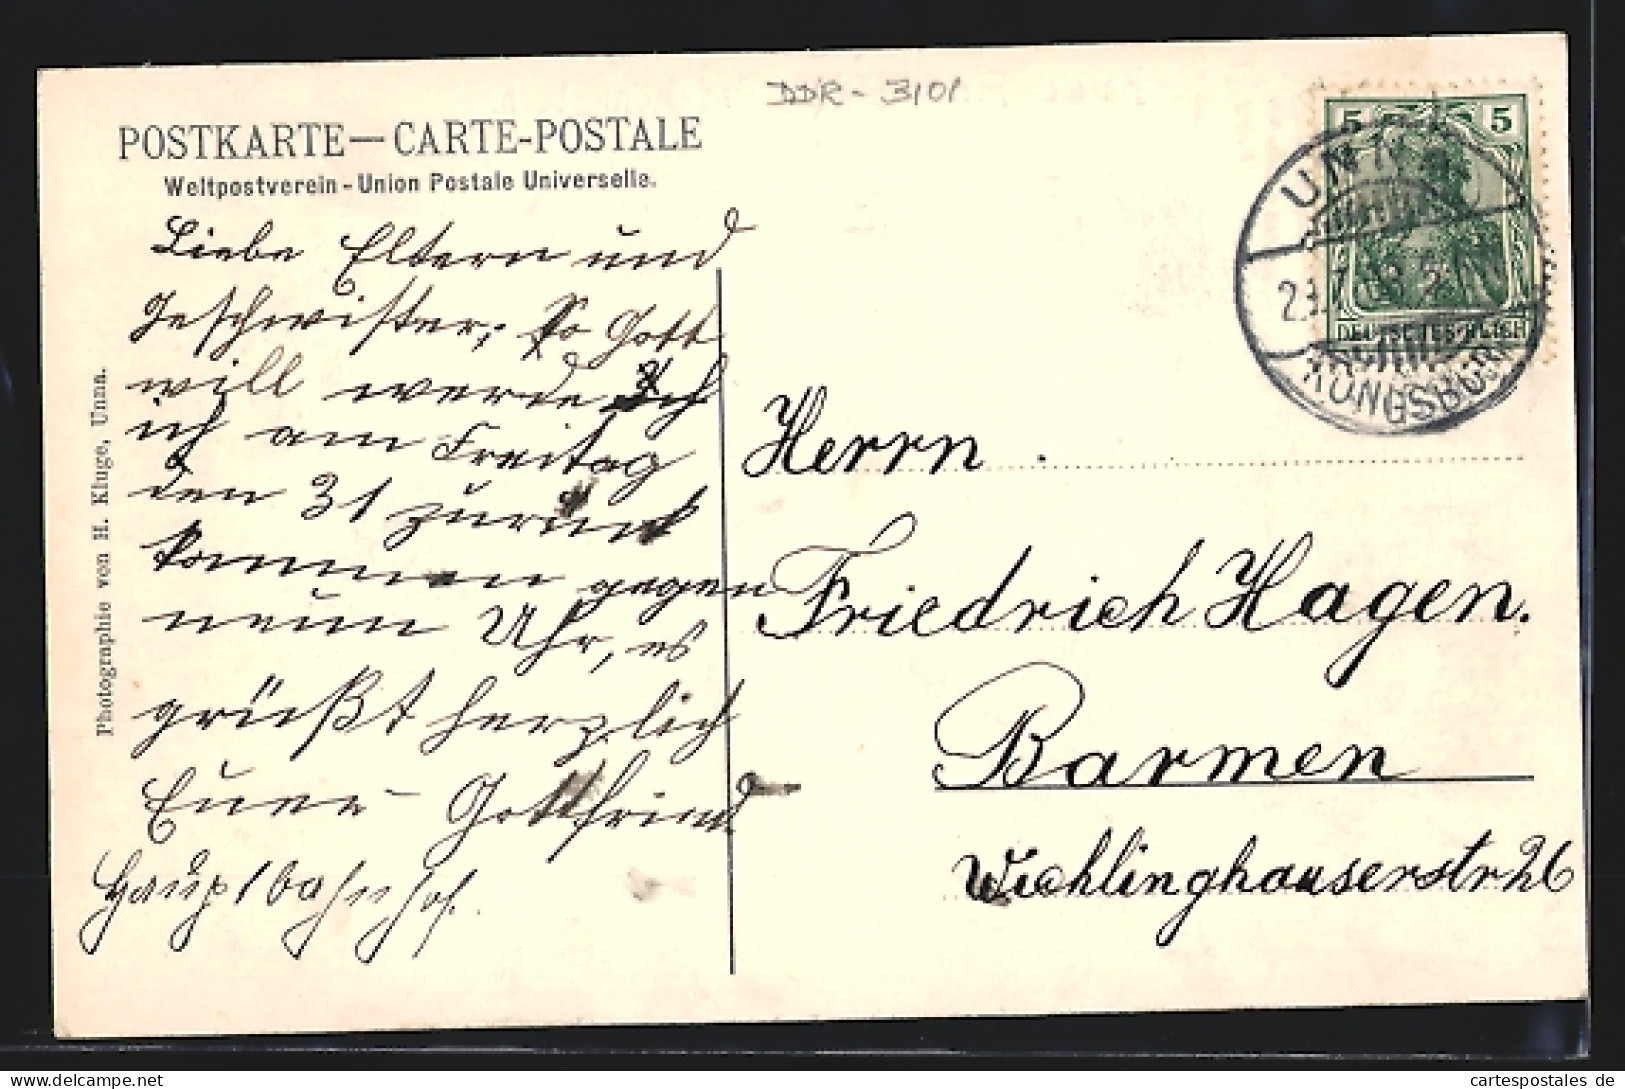 DDR - 3101
POSTKARTE—CARTE-POSTALE
Weltpostverein - Union Postale Universelle.
Liebe Eltern und
Geschwister, So Gott
will werde ich
ich am Freitag
den 31 zurück
kommen gegen
neun Uhr, es
grüßt herzlich
Euer Gottfried
Hauptbahnhof.
Photographie von H. Kluge, Unna.
5 5
DEUTSCHES REICH
UNNA
KÖNIGSBORN
Herrn
Friedrich Hagen.
Barmen
Wichlinghauserstr 26
cartespostales de